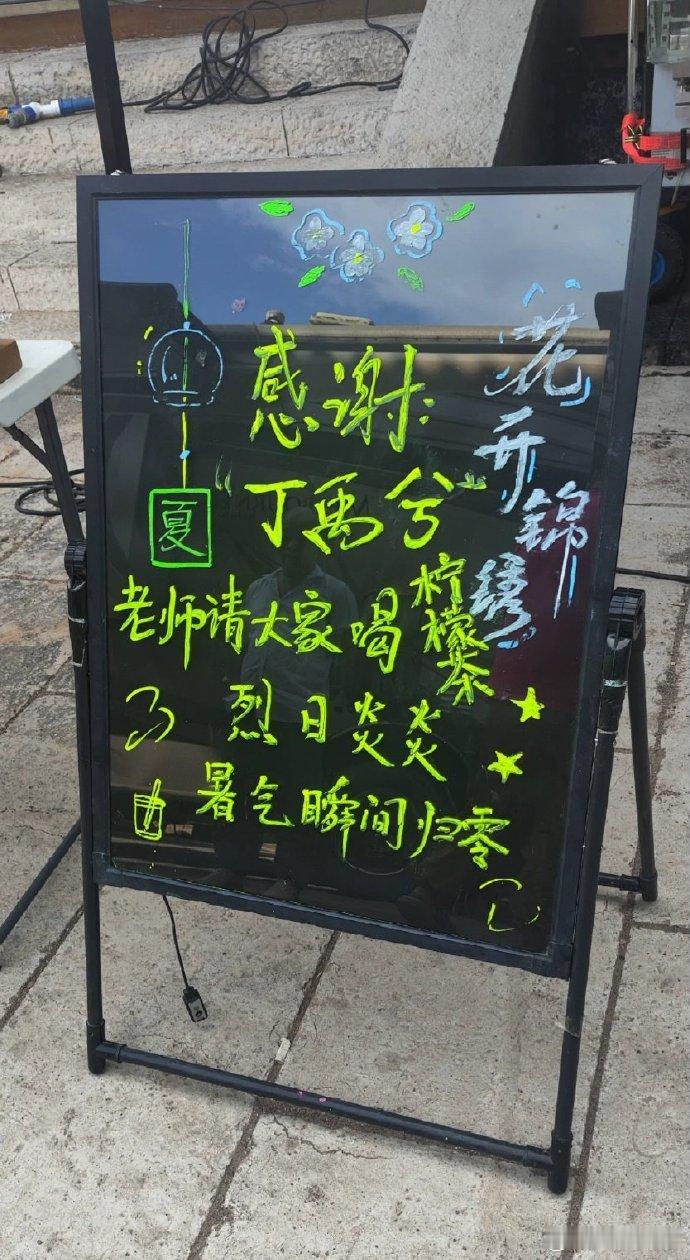 花开锦绣
感谢:
“丁禹兮”
夏
老师请大家喝柠檬茶
烈日炎炎
暑气瞬间归零